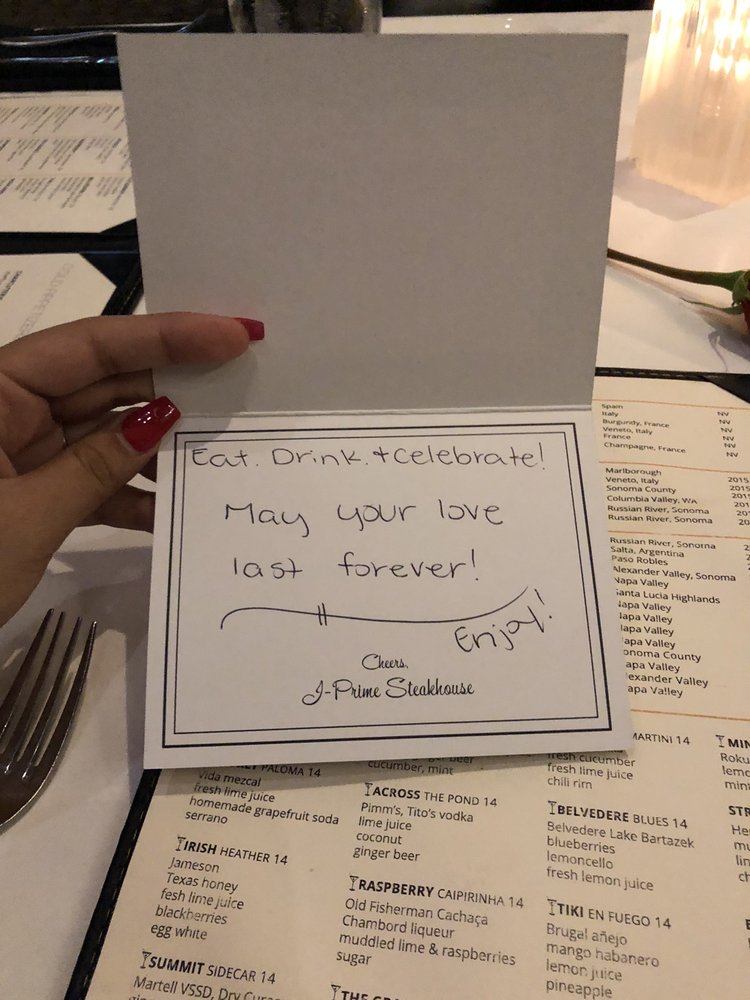 Eat. Drink. + Celebrate!
May your love
last forever!
Enjoy!
Cheers,
J-Prime Steakhouse
Spain
Italy
Burgundy, France
Veneto, Italy
France
Champagne, France
NV
NV
NV
NV
NV
NV
Marlborough
Veneto, Italy 2015
Sonoma County
Columbia Valley, WA
Russian River, Sonoma
Russian River, Sonoma
Russian River, Sonoma
Salta, Argentina
Paso Robles
Alexander Valley, Sonoma
Napa Valley
Santa Lucia Highlands
Napa Valley
Napa Valley
Napa Valley
Napa Valley
Sonoma County
Napa Valley
Alexander Valley
Napa Valley
PALOMA 14
Vida mezcal
fresh lime juice
homemade grapefruit soda
serrano
IRISH HEATHER 14
Jameson
Texas honey
fesh lime juice
blackberries
egg white
SUMMIT SIDECAR 14
Martell VSSD, Dry
ginger beer
cucumber, mint
ACROSS THE POND 14
Pimm's, Tito's vodka
lime juice
coconut
ginger beer
RASPBERRY CAIPIRINHA 14
Old Fisherman Cachaça
Chambord liqueur
muddled lime & raspberries
sugar
THE
MARTINI 14
fresh cucumber
fresh lime juice
chili rim
BELVEDERE BLUES 14
Belvedere Lake Bartazek
blueberries
lemoncello
fresh lemon juice
TIKI EN FUEGO 14
Brugal añejo
mango habanero
lemon juice
pineapple
MIN
Roku